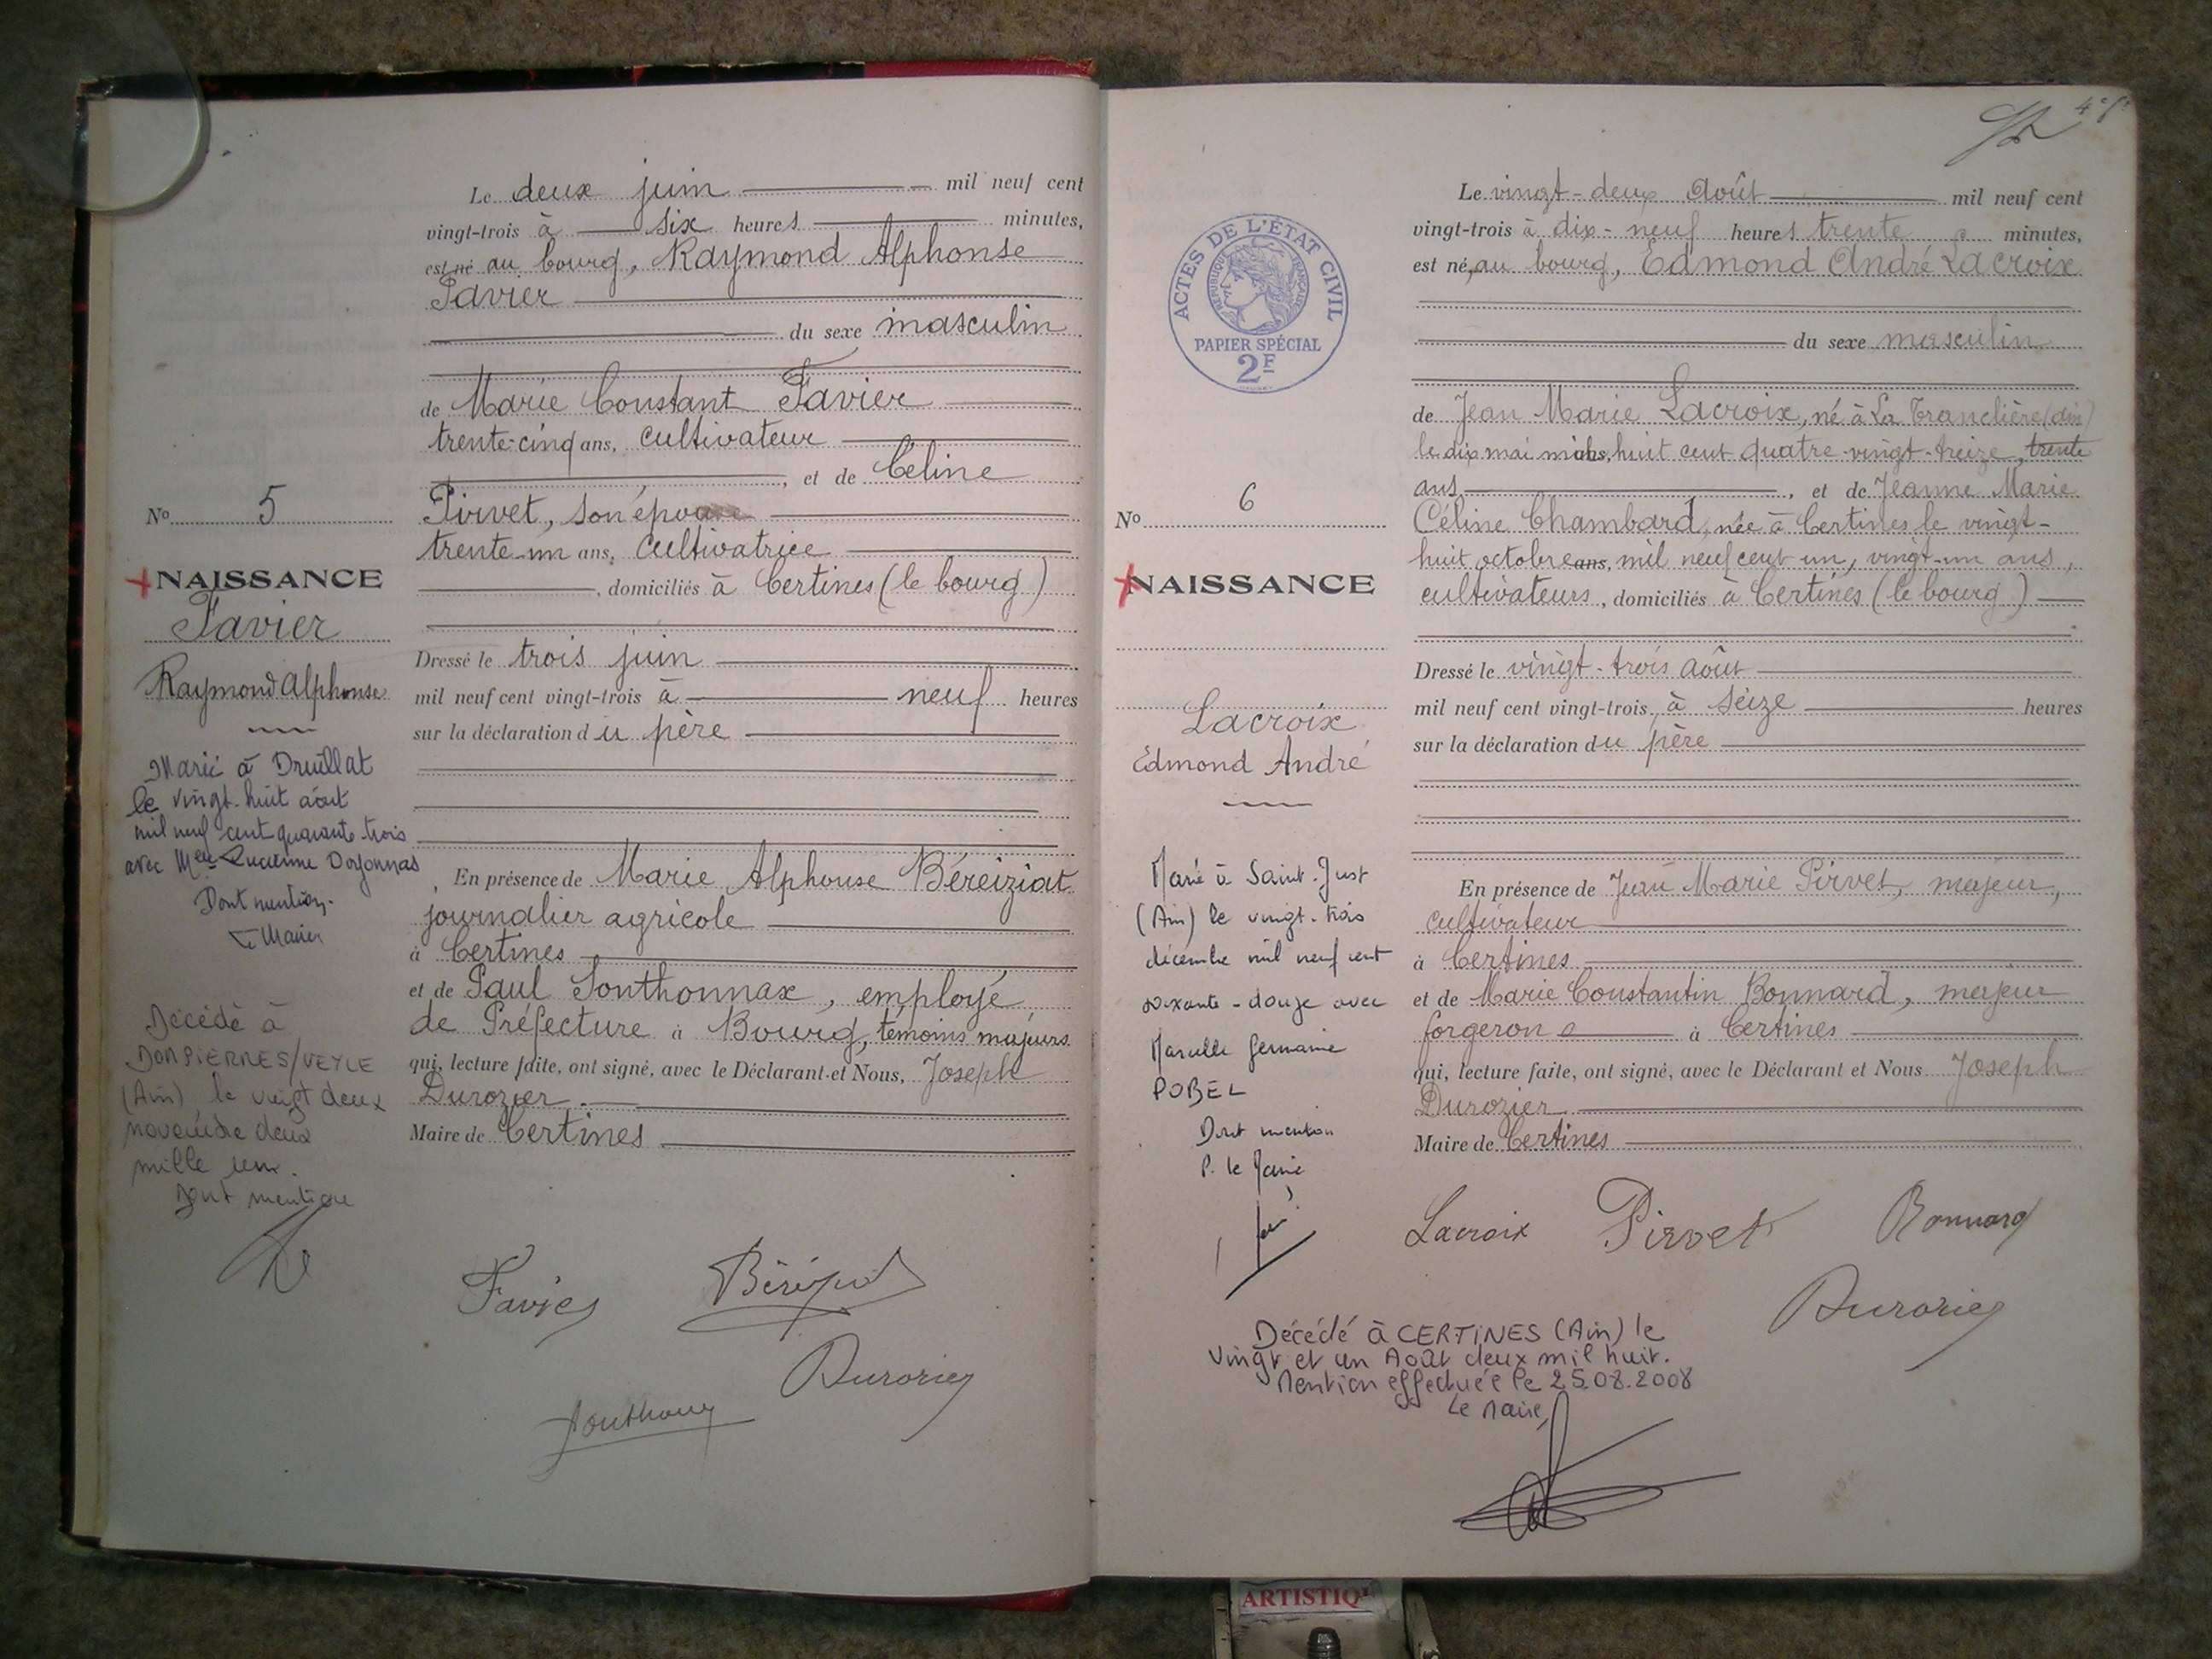 Le deux juin mil neuf cent
vingt-trois à six heures minutes,
est né au bourg, Raymond Alphonse
Favier
du sexe masculin
de Marie Constant Favier
trente-cinq ans, cultivateur
, et de Céline
Pirvet, son épouse
trente-un ans, cultivatrice
, domiciliés à Certines (le bourg)
Dressé le trois juin
mil neuf cent vingt-trois à neuf heures
sur la déclaration du père
En présence de Marie Alphonse Béreiziat
journalier agricole
à Certines
et de Paul Sonthonnax, employé
de Préfecture à Bourg, témoins majeurs
qui, lecture faite, ont signé, avec le Déclarant et Nous, Joseph
Durozier
Maire de Certines
Favier
Durozier
No 5
NAISSANCE
Favier
Raymond Alphonse
Marié à Druillat
le vingt-huit août
mil neuf cent quarante-trois
avec Mlle Lucienne Doyonnas
Dont mention.
Le Maire
Décédé à
DOMPIERRES/VEYLE
(Ain) le vingt deux
novembre deux
mille un.
Dont mention
ACTES DE L'ÉTAT CIVIL
RÉPUBLIQUE FRANÇAISE
PAPIER SPÉCIAL
2F
No 6
NAISSANCE
Lacroix
Edmond André
Marié à Saint-Just
(Ain) le vingt-trois
décembre mil neuf cent
soixante-douze avec
Marcelle Germaine
POBEL
Dont mention
P. le Maire
Le vingt-deux août mil neuf cent
vingt-trois à dix-neuf heures trente minutes,
est né, au bourg, Edmond André Lacroix
du sexe masculin
de Jean Marie Lacroix, né à La Tranclière (Ain)
le dix mai mil huit cent quatre-vingt-treize, trente
ans, et de Jeanne Marie
Céline Chambard, née à Certines le vingt-
huit octobre ans, mil neuf cent un, vingt-un ans,
cultivateurs, domiciliés à Certines (le bourg)
Dressé le vingt-trois août
mil neuf cent vingt-trois, à seize heures
sur la déclaration du père
En présence de Jean Marie Pirvet, majeur,
cultivateur
à Certines
et de Marie Constantin Bonnard, majeur
forgeron à Certines
qui, lecture faite, ont signé, avec le Déclarant et Nous Joseph
Durozier
Maire de Certines
Lacroix Pirvet Bonnard
Durozier
Décédé à CERTINES (Ain) le
Vingt et un Août deux mil huit.
Mention effectuée le 25.08.2008
Le Maire,
ARTISTIQ